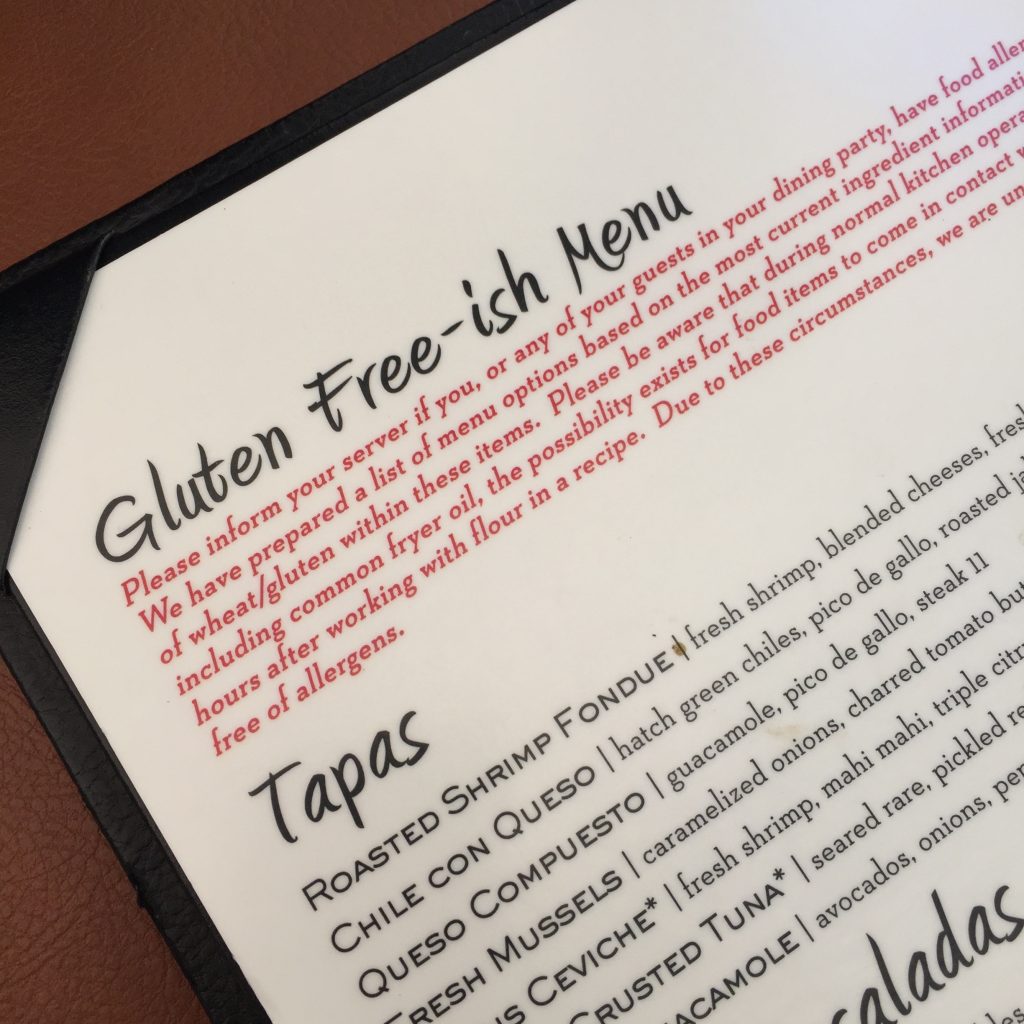 Gluten Free-ish Menu
Please inform your server if you, or any of your guests in your dining party, have food
We have prepared a list of menu options based on the most current ingredient
of wheat/gluten within these items. Please be aware that during normal kitchen
including common fryer oil, the possibility exists for food items to come in contact
hours after working with flour in a recipe. Due to these circumstances, we are
free of allergens.
Tapas
ROASTED SHRIMP FONDUE | fresh shrimp, blended cheeses,
CHILE CON QUESO | hatch green chiles, pico de gallo, roasted
QUESO COMPUESTO | guacamole, pico de gallo, steak 11
FRESH MUSSELS | caramelized onions, charred tomato
CEVICHE* | fresh shrimp, mahi mahi, triple
CRUSTED TUNA* | seared rare, pickled
| avocados, onions,